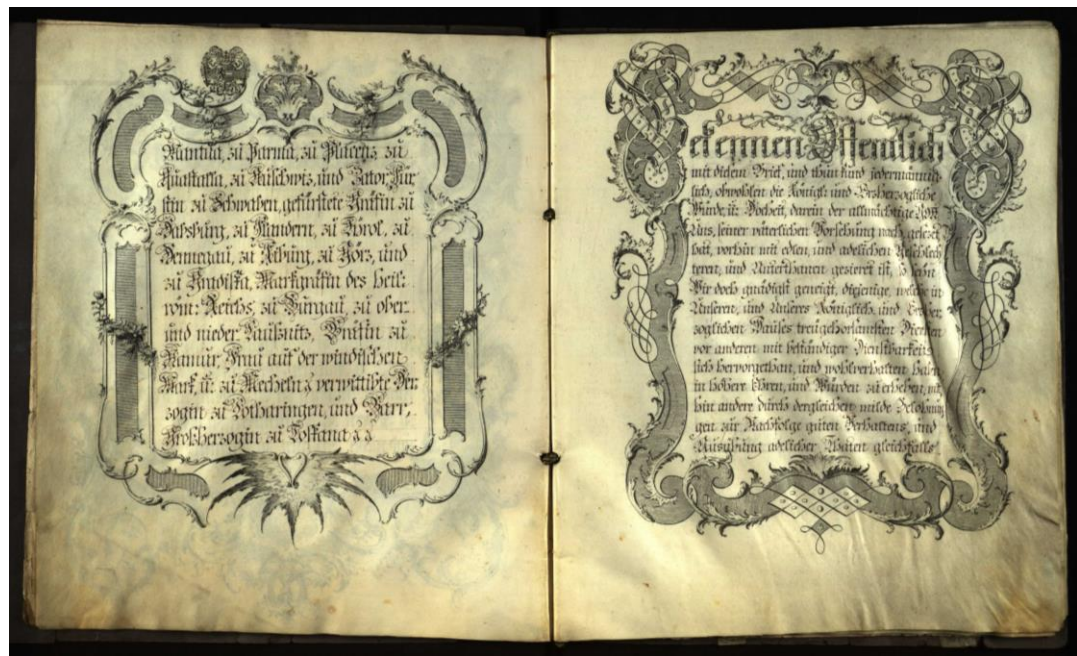 Mantua, zu Parma, zu Placenz, zu
Quastalla, zu Auschwiz, und Zator, Für
stin zu Schwaben, gefürstete Gräfin zu
Habspurg, zu Flandern, zu Tÿrol, zu
Hennegau, zu Kÿburg, zu Görz, und
zu Gradiska, Markgräfin des Heil:
röm: Reichs, zu Burgau, zu ober
und nieder Laußnitz, Gräfin zu
Namur, Frau auf der windischen
Mark, u: zu Mecheln &, verwittibte Her
zogin zu Lotharingen, und Barr,
Großherzogin zu Toskana & &
Bekennen Öffentlich
mit diesem Brief, und thun kund jedermännig
lich, obwohlen die Königl: und Erzherzogliche
Würde, u: Hocheit, darein der allmächtige Gott
Uns, seiner väterlichen Vorsehung nach, gesezet
hat, vorhin mit edlen, und adelichen Geschlech
teren, und Unterthanen gezieret ist, so seÿn
Wir doch gnädigst geneigt, diejenige, welche in
Unseren, und Unseres Königlich, und Erzher
zoglichen Hauses treugehorsamsten Diensten
vor anderen mit beständiger Dienstbarkeit
sich hervorgethan, und wohlverhalten habn
in höhere Ehren, und Würden zu erheben, mit
hin andere durch dergleichen milde Belohnun
gen zur Nachfolge guten Verhaltens, und
Ausübung adelicher Thaten gleichfalls